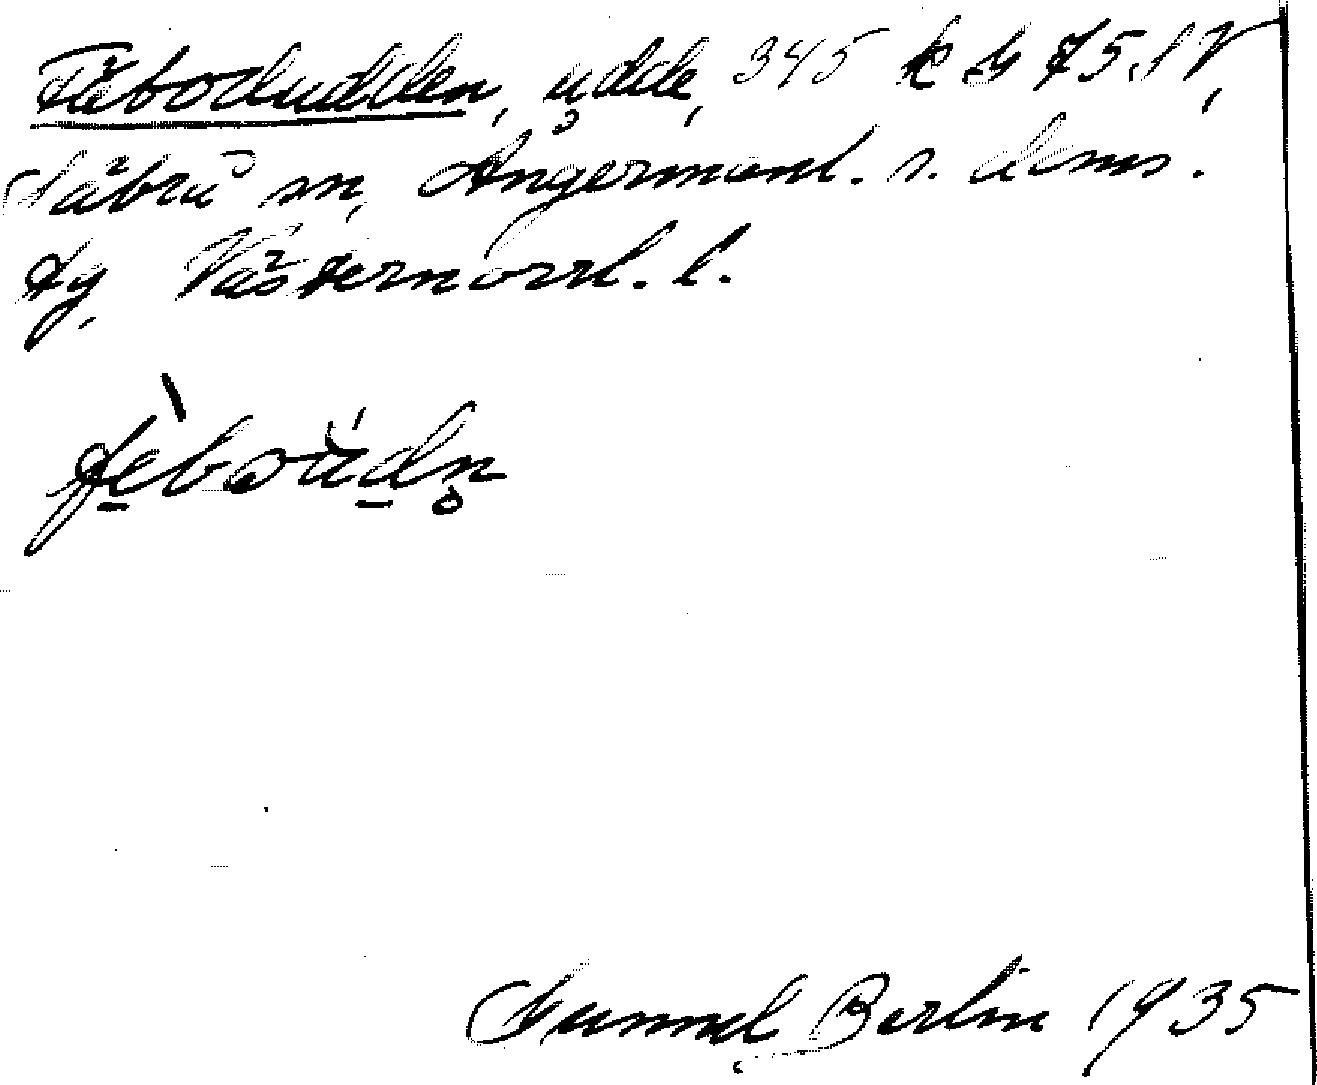 Fäbodudden, udde, 345 k b 75 SV,
Säbrå sn, Ångermanl. s. doms.
fg, Västernorrl. l.
fèboúdn̥
Gunnel Berlin 1935